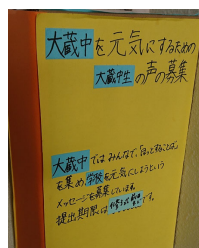 大蔵中を元気にするための
大蔵中生の声の募集
大蔵中ではみんなで、「ほっとすること」
を集め学校を元気にしようという
メッセージを募集しています。
提出期限は です。